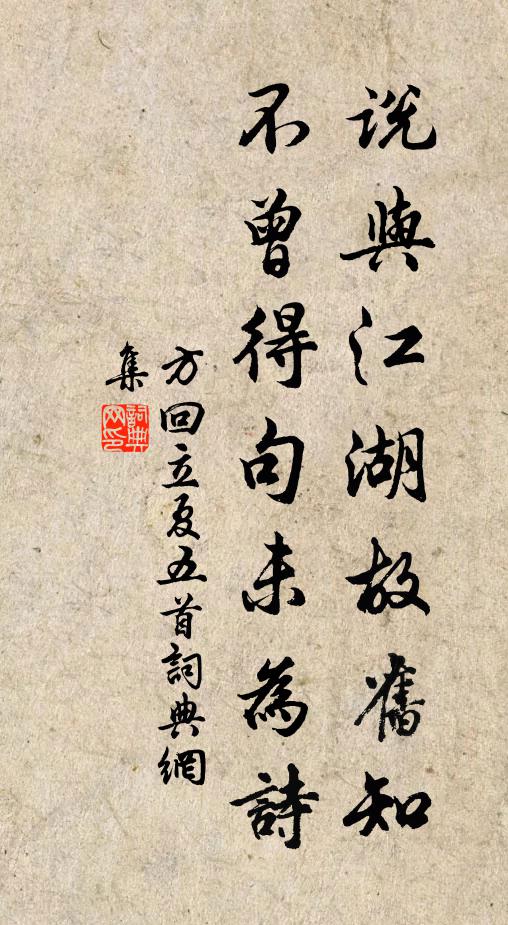 説與江湖故舊知
不曾得句未為詩
方回立夏五首詞典網
集
詞典
网印